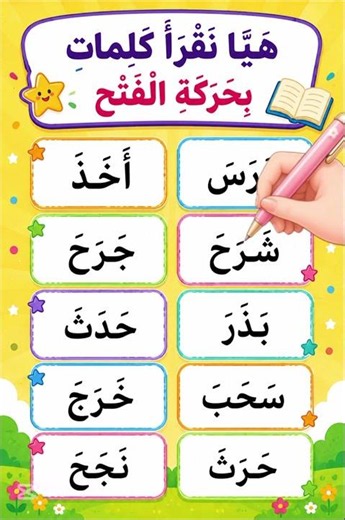 هَيَّا نَقْرَأَ كَلِماتِ
بِحَرَكَةِ الْفَتْح
أَخَذَ
شَرَحَ
جَرَحَ
بَذَرَ
حَدَثَ
سَحَبَ
خَرَجَ
حَرَثَ
نَجَحَ